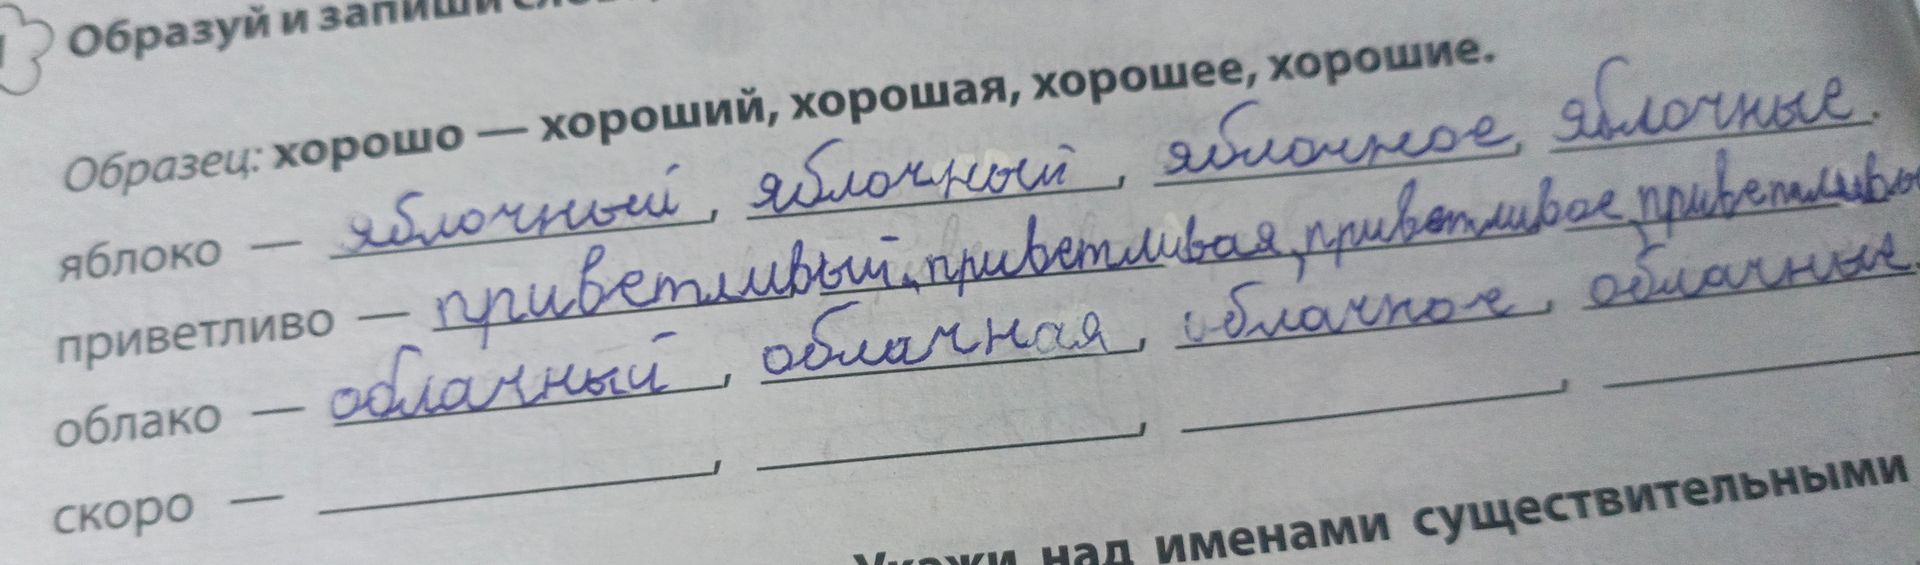 Образуй и запиши
Образец: хорошо — хороший, хорошая, хорошее, хорошие.
яблоко — яблочный, яблочный, яблочное, яблочные.
приветливо — приветливый, приветливая, приветливое, приветливы
облако — облачный, облачная, облачное, облачные.
скоро — , ,
Укажи над именами существительными